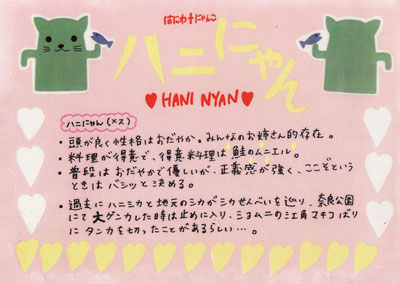 はにわ+にゃんこ
ハニにゃん
♥HANI NYAN♥
ハニにゃん(メス)
・頭が良く性格はおだやか。みんなのお姉さん的存在。
・料理が得意で、得意料理は鮭のムニエル。
・普段はおだやかで優しいが、正義感が強く、ここぞという
ときはバシッと決める。
・過去にハニシカと地元のシカがシカせんべいを巡り、奈良公園
にて大ゲンカした時は止めに入り、ショムニの江角マキコばり
にタンカを切ったことがあるらしい…。